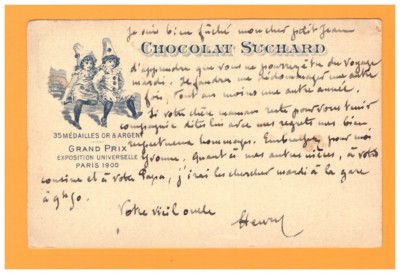 Je suis bien fâché mon cher petit Jean
CHOCOLAT SUCHARD
d'apprendre que vous ne pourrez être du voyage
mardi. Je faudra me dédommager une autre
fois, tout au moins une autre année.
Si votre chère maman reste pour vous tenir
compagnie dites lui avec mes regrets mes bien
respectueux hommages. Embrassez pour moi
Yvonne. Quant à mes autres nièces, à votre
cousine et à votre Papa, j'irai les chercher mardi à la gare
à 9h50.
Votre vieil oncle
Henry
35 MÉDAILLES OR & ARGENT
GRAND PRIX
EXPOSITION UNIVERSELLE
PARIS 1900